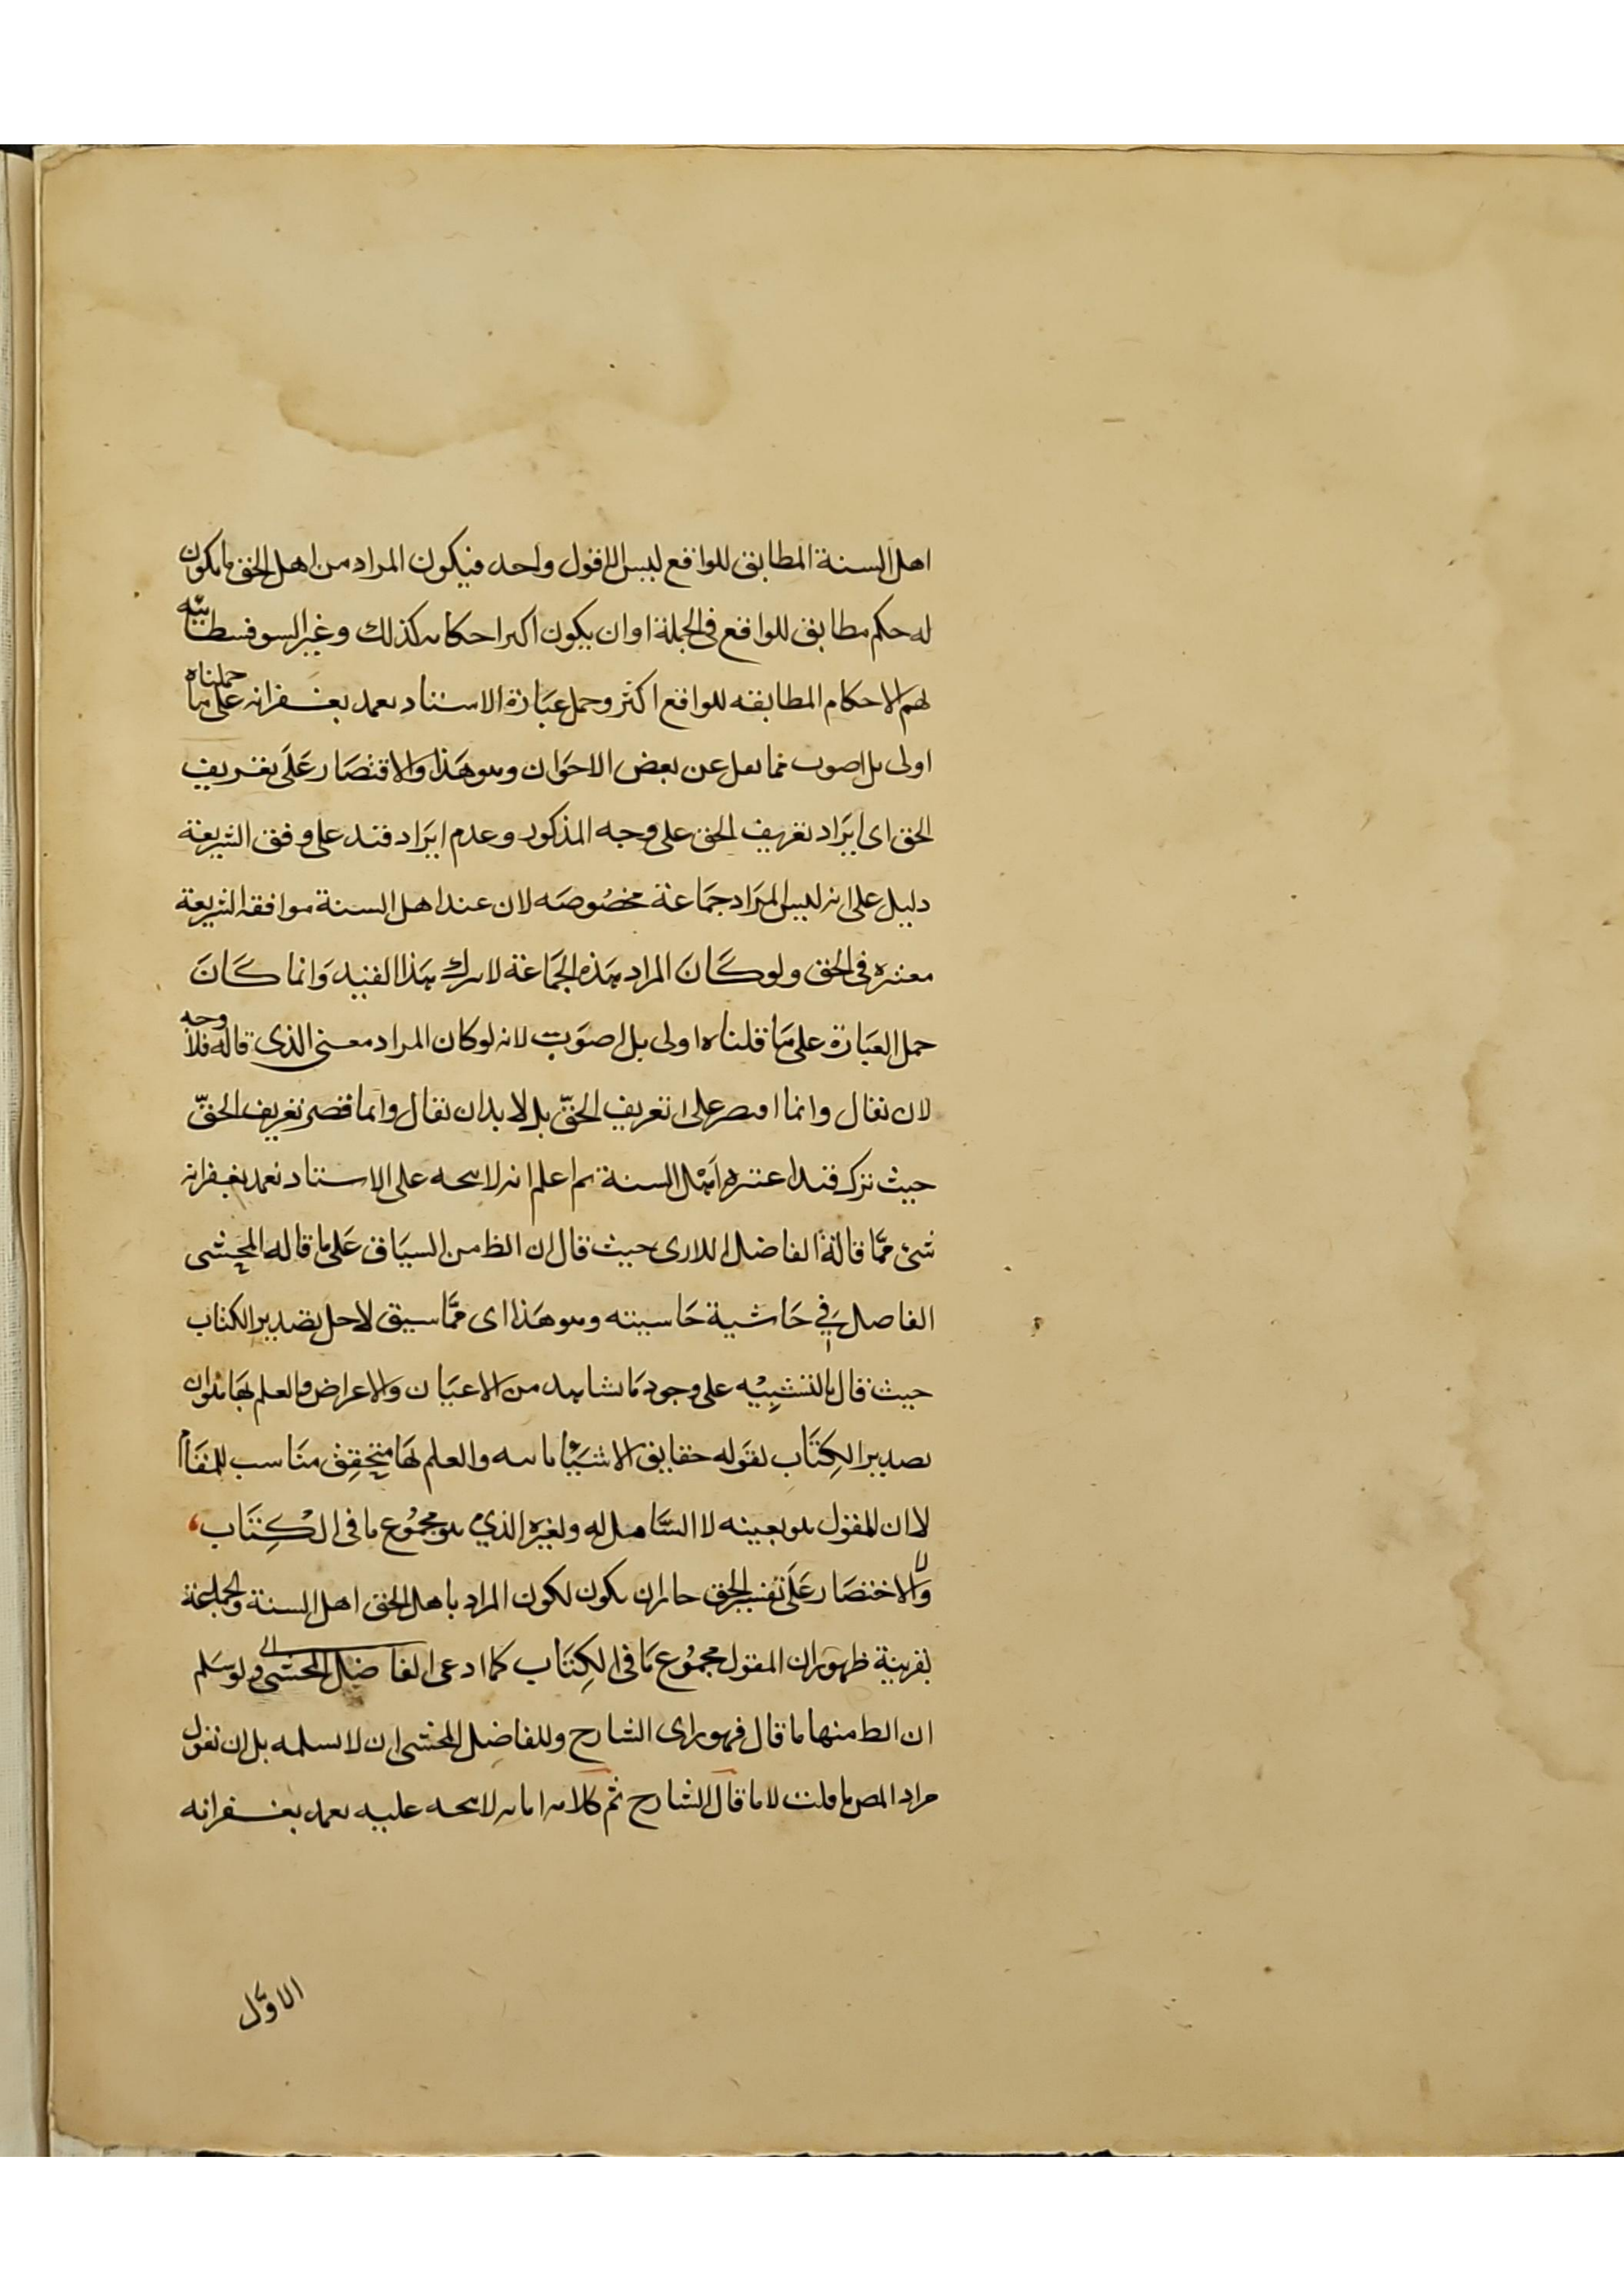 اهل السنة المطابق للواقع ليس الا قول واحد فيكون المراد من اهل الحق ما يكون
له حكم مطابق للواقع فى الجملة او ان يكون اكثر احكامه كذلك وغير السوفسطائيه
لهم الاحكام المطابقه للواقع اكثر وحمل عبارة الاستناد تغمد بغفرانه على ما حملناه
اولى بل اصوب فما نقل عن بعض الاخوان وهو هذا والاقتصار على تعريف
الحق اى ايراد تعريف الحق على وجه المذكور وعدم ايراد قيد على وفق الشريعة
دليل على انه ليس المراد جماعة مخصوصه لان عند اهل السنة موافقه الشريعة
معتبره فى الحق ولو كان المراد هذه الجماعة لا ترك هذا القيد وانما كان
حمل العبارة على ما قلناه اولى بل اصوب لانه لو كان المراد معنى الذى قاله فلا وجه
لان نقال وانما اقتصر على تعريف الحق بل لا بد ان نقال وانما قصر تعريف الحق
حيث ترك قيد اعتبره اهل السنة ثم اعلم انه لا يتجه على الاستناد تغمد بغفرانه
شئ مما قاله الفاضل اللارى حيث قال ان الظ من السياق على ما قاله المحشى
الفاضل فى حاشية حاشيته وهو هذا اى مما سبق لاجل تصدير الكتاب
حيث قال بالتنبيه على وجود ما نشاهد من الاعيان والاعراض والعلم بها ان
تصدير الكتاب بقوله حقايق الاشياء ثابته والعلم بها متحقق مناسب للمقام
لا ان المقول هو بعينه لا الشامل له ولغيره الذي هو مجموع ما فى الكتاب
والاختصار على تفسير الحق جاز ان يكون لكون المراد باهل الحق اهل السنة والجماعة
بقرينة ظهور ان المقول مجموع ما فى الكتاب كما ادعى الفاضل المحشى ولو سلم
ان الظ منها ما قال فهو راى الشارح وللفاضل المحشى ان لا يسلمه بل ان نقول
مراد المص ما قلت لا ما قال الشارح ثم كلامه اما انه لا يتجه عليه تغمد بغفرانه
الاول